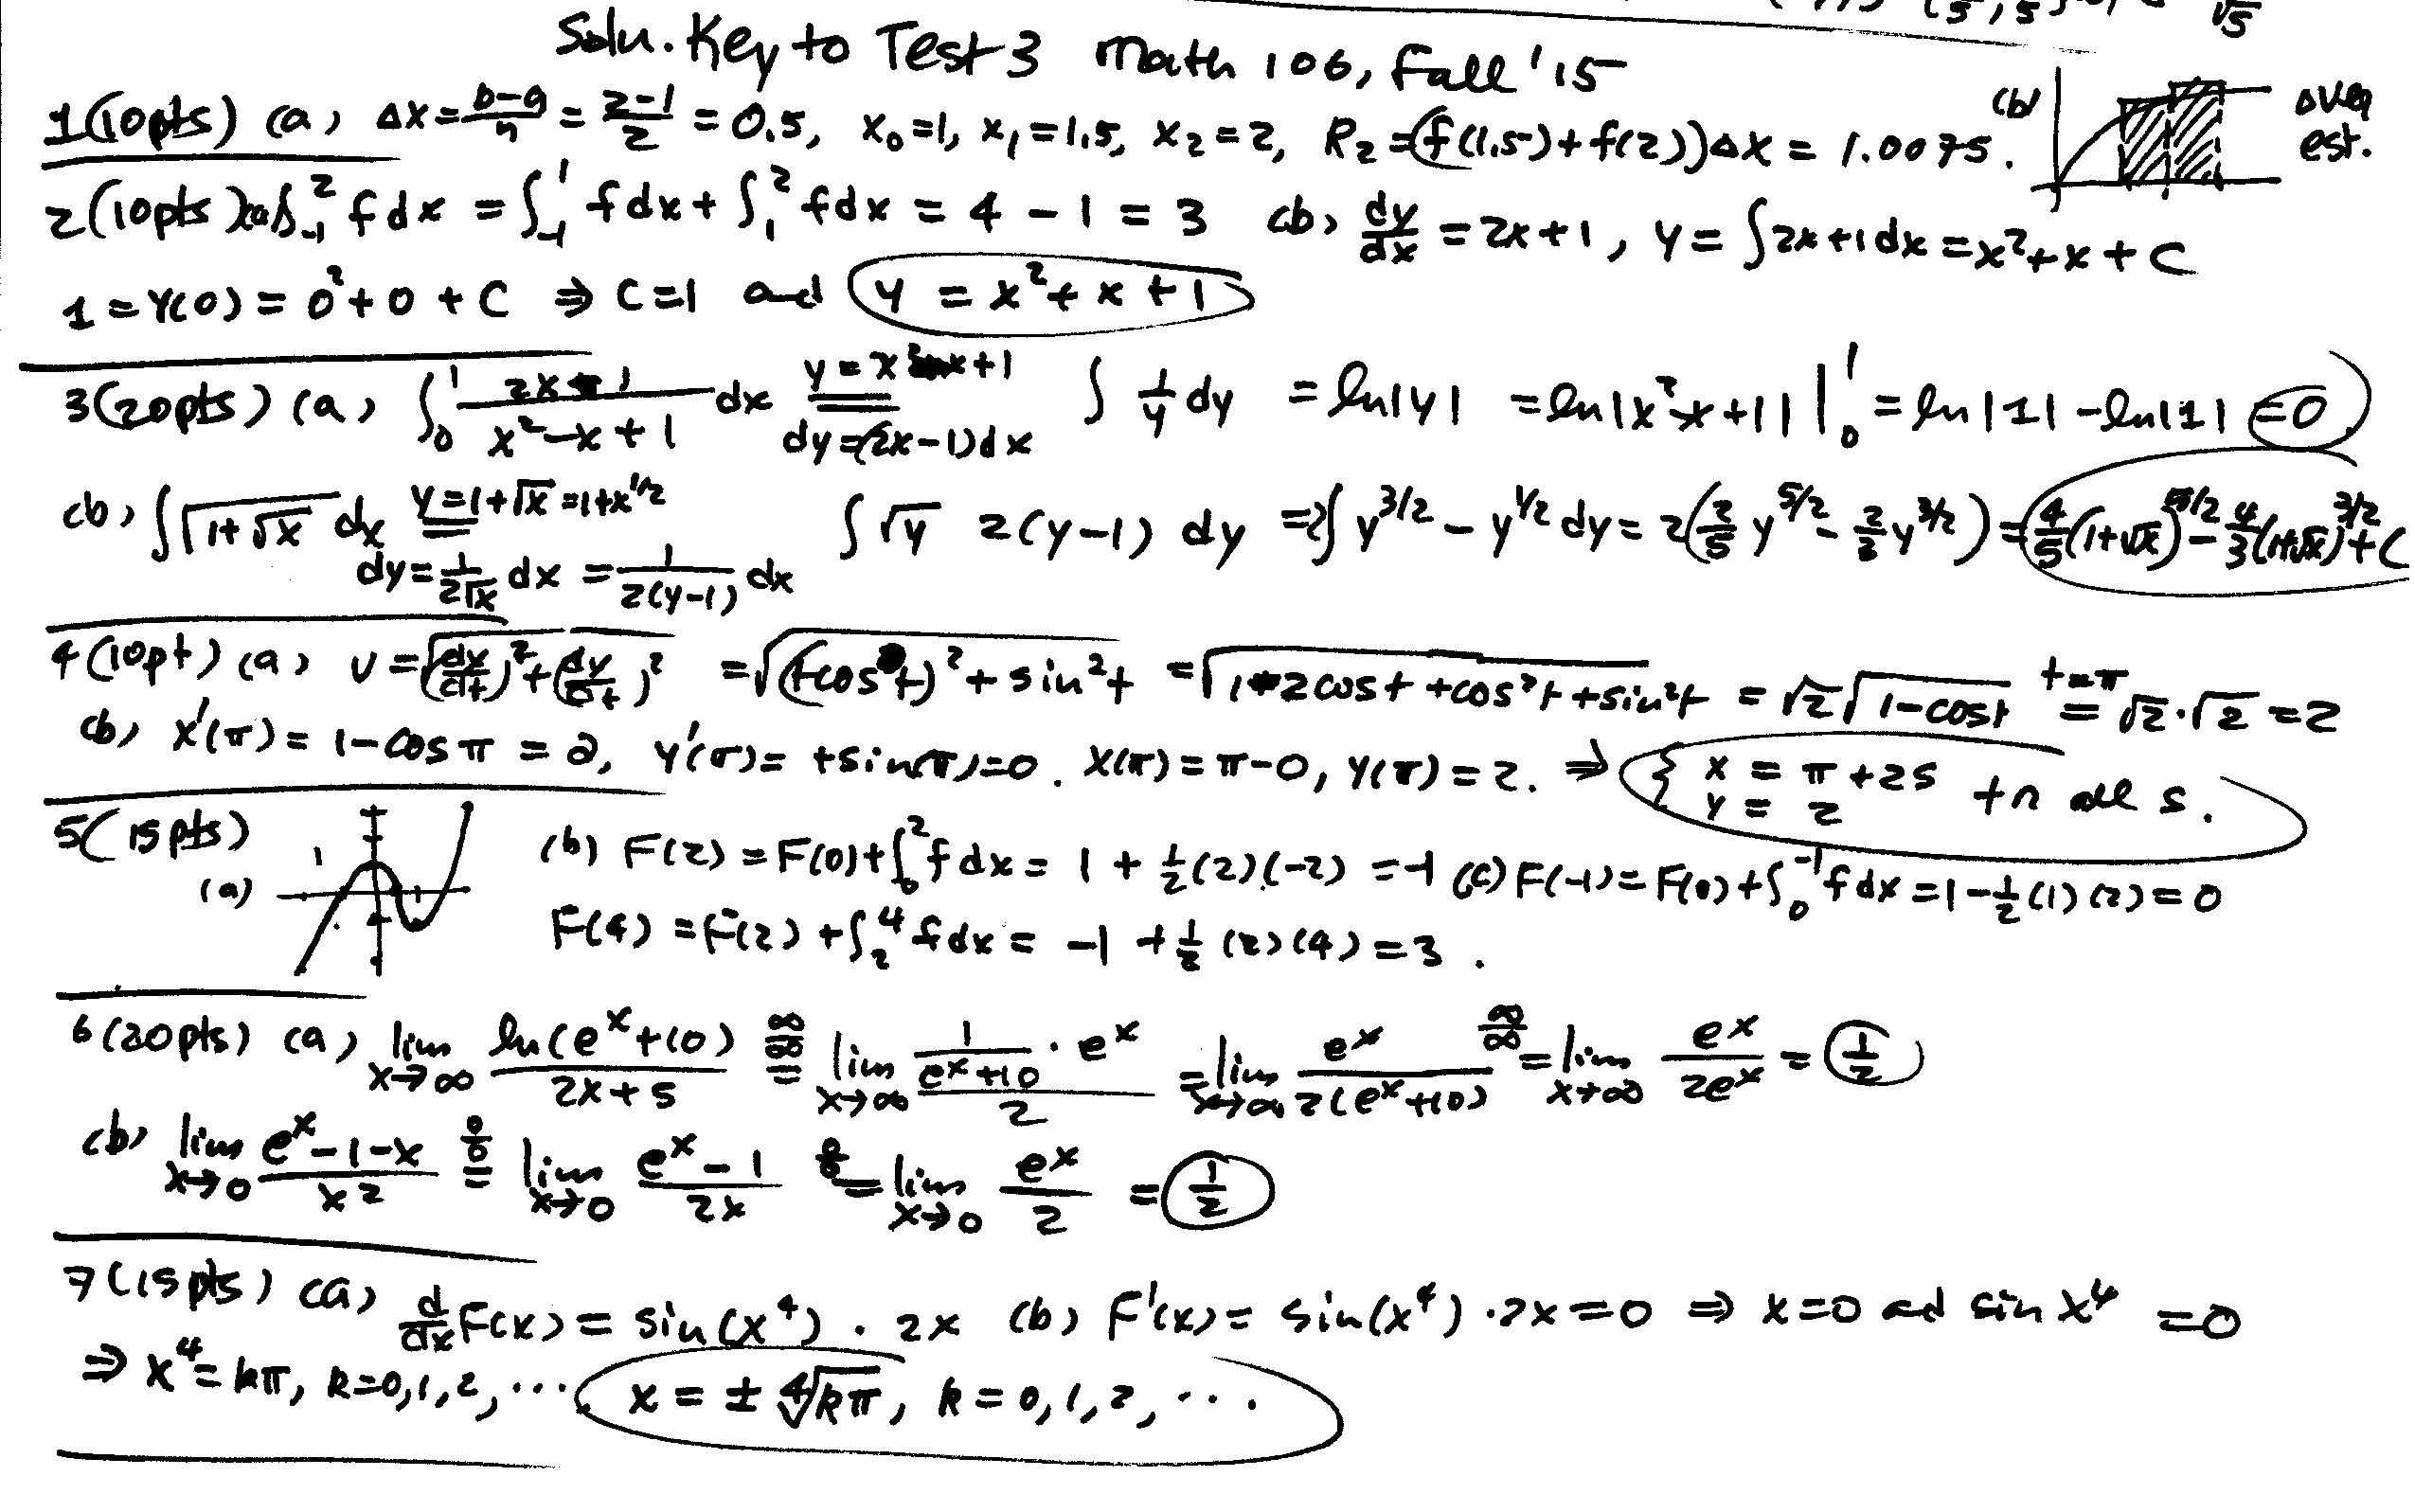 Soln. Key to Test 3 Math 106, Fall '15
1(10pts) (a) Δx = (b-a)/n = (2-1)/2 = 0.5, x₀=1, x₁=1.5, x₂=2, R₂ = (f(1.5)+f(2))Δx = 1.0075. (b) over est.
2(10pts) (a) ∫₋₁² f dx = ∫₋₁¹ f dx + ∫₁² f dx = 4 - 1 = 3 (b) dy/dx = 2x+1, y = ∫2x+1 dx = x²+x+C
1 = y(0) = 0²+0+C ⇒ C=1 and y = x²+x+1
3(20pts) (a) ∫₀¹ (2x-1)/(x²-x+1) dx y = x²-x+1 dy=(2x-1)dx ∫ 1/y dy = ln|y| = ln|x²-x+1| |₀¹ = ln|1| - ln|1| = 0
(b) ∫√(1+√x) dx y=1+√x=1+x^(1/2) ∫√y 2(y-1) dy = 2∫ y^(3/2) - y^(1/2) dy = 2(2/5 y^(5/2) - 2/3 y^(3/2)) = 4/5(1+√x)^(5/2) - 4/3(1+√x)^(3/2) + C
dy = 1/(2√x) dx = 1/(2(y-1)) dx
4(10pt) (a) v = √((dx/dt)²+(dy/dt)²) = √((1-cos t)²+sin²t) = √(1-2cost+cos²t+sin²t) = √2√(1-cost) t=π = √2·√2 = 2
(b) x'(π) = 1-cosπ = 2, y'(π) = +sin(π)=0. x(π) = π-0, y(π) = 2. ⇒ { x = π+2s y = 2 for all s.
5(15pts)
(a) 1 (b) F(2) = F(0)+∫₀² f dx = 1 + 1/2(2)(-2) = -1 (c) F(-1) = F(0)+∫₀⁻¹ f dx = 1-1/2(1)(2) = 0
F(4) = F(2)+∫₂⁴ f dx = -1 + 1/2(2)(4) = 3.
6(20pts) (a) lim x→∞ ln(eˣ+10)/(2x+5) ∞/∞ = lim x→∞ (1/(eˣ+10)·eˣ)/2 = lim x→∞ eˣ/(2(eˣ+10)) ∞/∞ = lim x→∞ eˣ/(2eˣ) = 1/2
(b) lim x→0 (eˣ-1-x)/x² 0/0 = lim x→0 (eˣ-1)/(2x) 0/0 = lim x→0 eˣ/2 = 1/2
7(15pts) (a) d/dx F(x) = sin(x⁴)·2x (b) F'(x) = sin(x⁴)·2x = 0 ⇒ x=0 and sin x⁴ = 0
⇒ x⁴ = kπ, k=0,1,2,... x = ± ⁴√kπ, k = 0,1,2,...